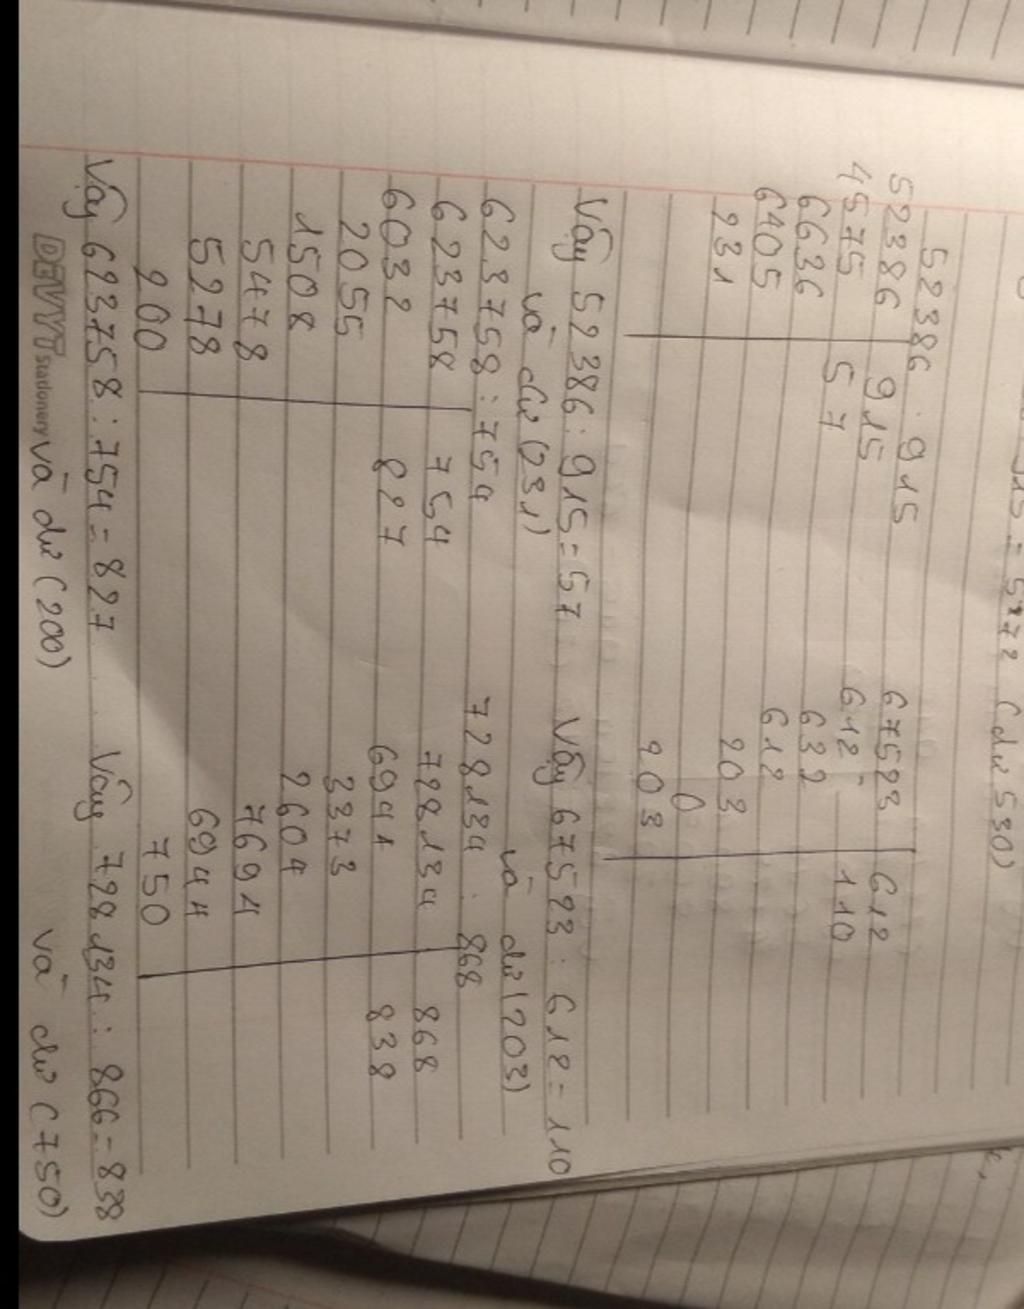 = 5772 (dư 530)
52386 : 915
52386 915 67523 612
4575 57 612 110
6636 632
6405 612
231 203
0
203
Vậy 52386 : 915 = 57 Vậy 67523 : 612 = 110
và dư (231) và dư (203)
623758 : 754 728134 : 868
623758 754 728134 868
6032 827 6944 838
2055 3373
1508 2604
5478 7694
5278 6944
200 750
Vậy 623758 : 754 = 827 Vậy 728134 : 866 = 838
DEVYT Stationery và dư (200) và dư (750)